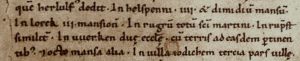 que herluif dedit. In helspenni. iiii. & dimidiū mansū
In lorek. iii. mansion. In rugru totū sci martini. In rupst
similit. In uuerken duę eccłe. cū terris ad easdem ꝑtinen
tib; 7 octo mansa alia. In uilla iodichem tercia pars uillę.